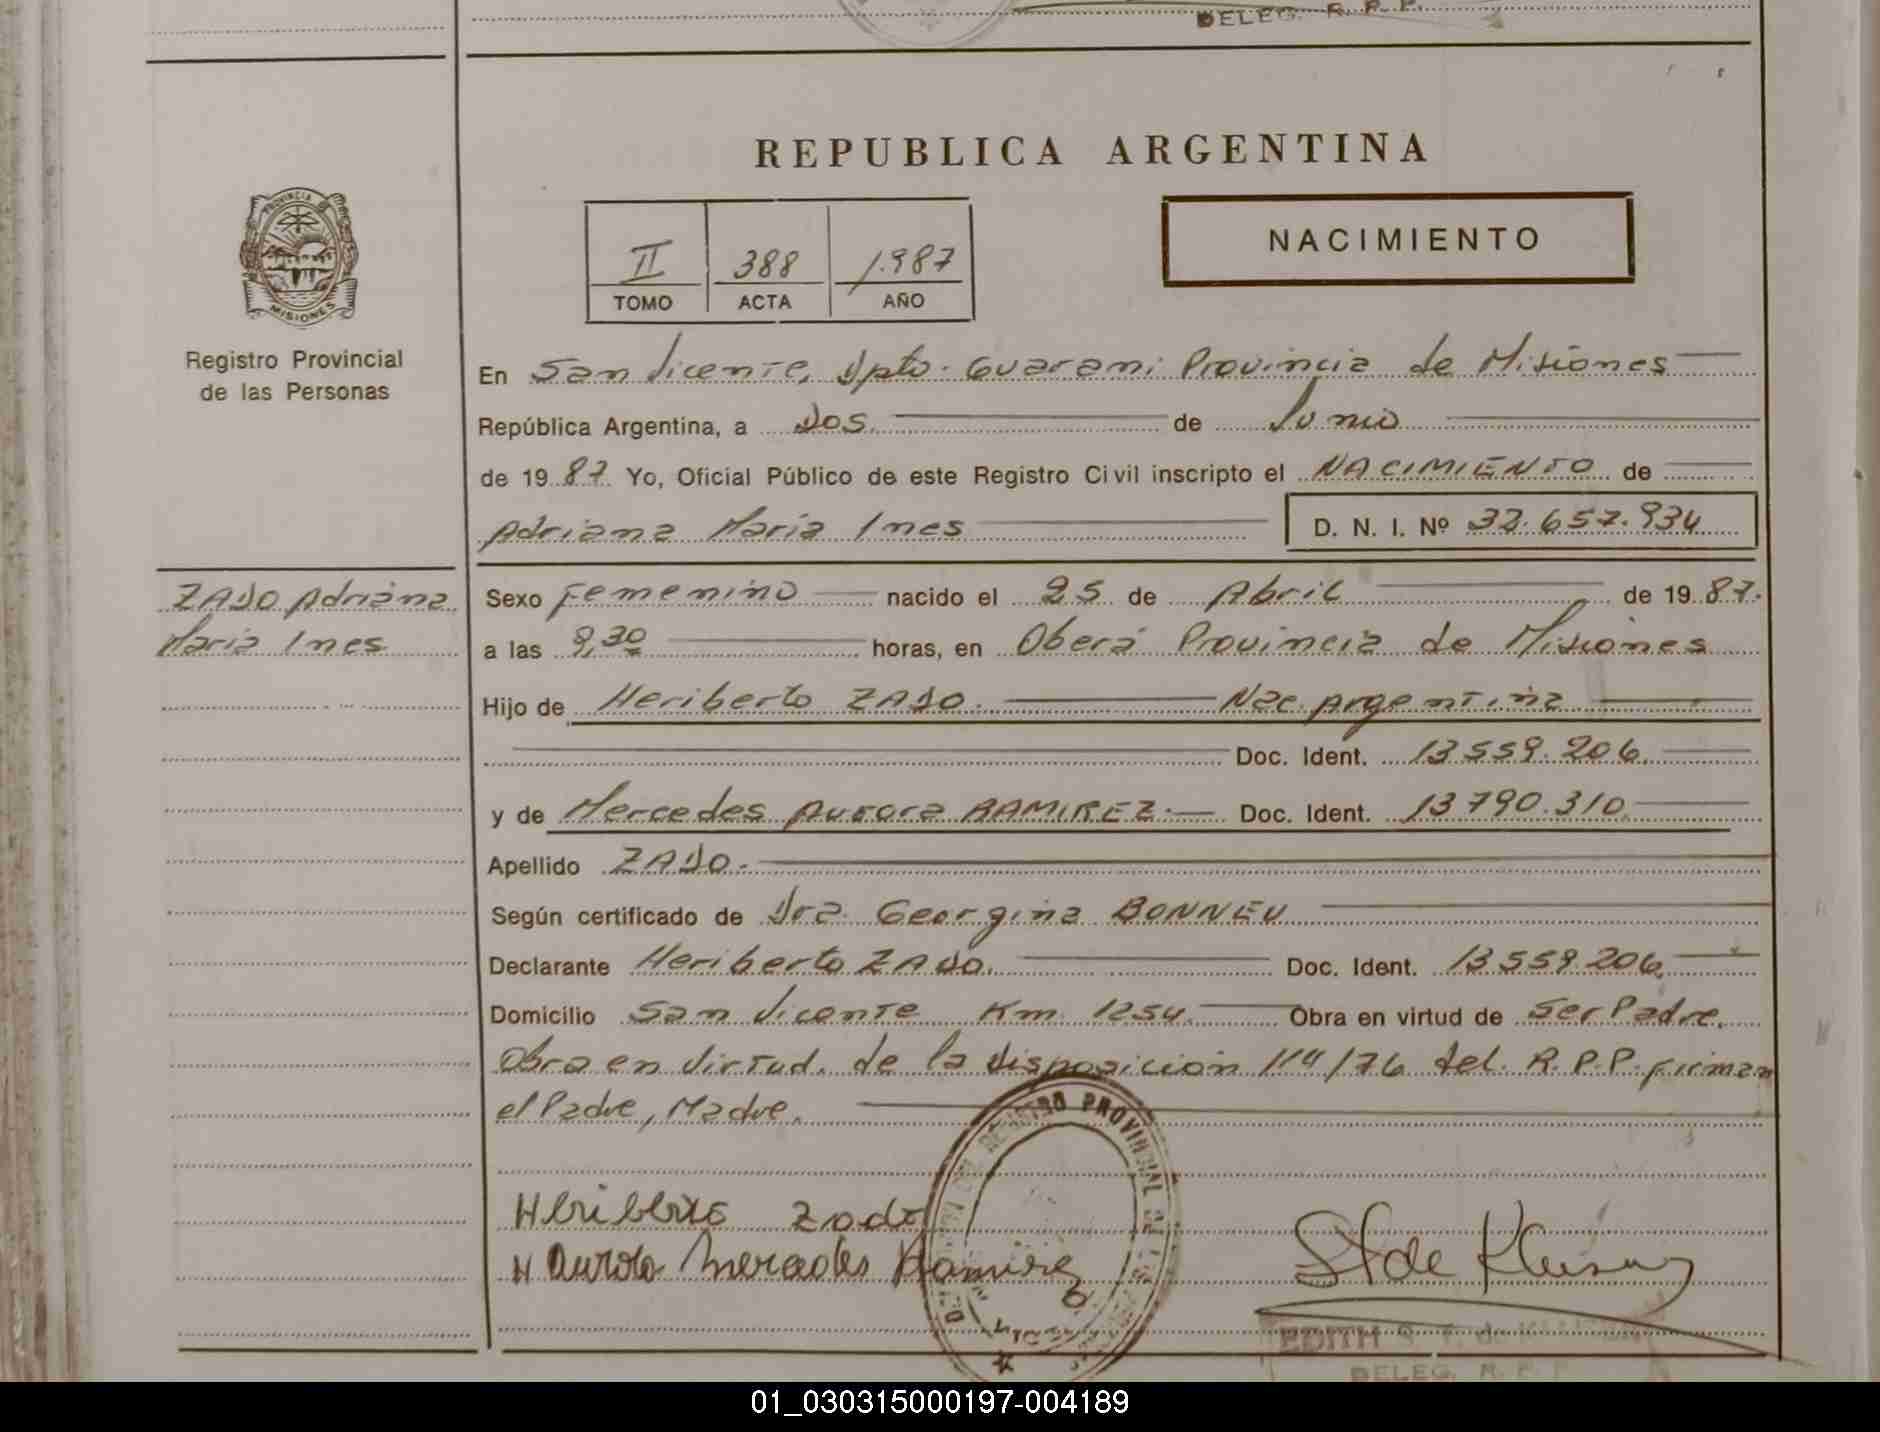 DELEG. R. P. P.
REPUBLICA ARGENTINA
PROVINCIA
MISIONES
Registro Provincial
de las Personas
II 388 1.987
TOMO ACTA AÑO
NACIMIENTO
En San Vicente, Dpto. Guarani Provincia de Misiones
República Argentina, a Dos de Junio
de 19 87 Yo, Oficial Público de este Registro Civil inscripto el NACIMIENTO de
Adriana Maria Ines D. N. I. Nº 32.657.934
ZADO Adriana
Maria Ines
Sexo Femenino nacido el 25 de Abril de 19 87.
a las 9,30 horas, en Oberá Provincia de Misiones
Hijo de Heriberto ZADO. Nac. Argentina
Doc. Ident. 13 559.206.
y de Mercedes Aurora RAMIREZ. Doc. Ident. 13 790.310.
Apellido ZADO.
Según certificado de Dra. Georgina BONNEU
Declarante Heriberto ZADO. Doc. Ident. 13 559.206.
Domicilio San Vicente Km. 1254. Obra en virtud de Ser Padre.
Obra en virtud. de la disposición 114/76 del. R.P.P. firman
el Padre, Madre.
REGISTRO PROVINCIAL DE LAS
Heriberto Zado
Aurora Mercedes Ramirez
EDITH
DELEG. R. P. P.
01_030315000197-004189